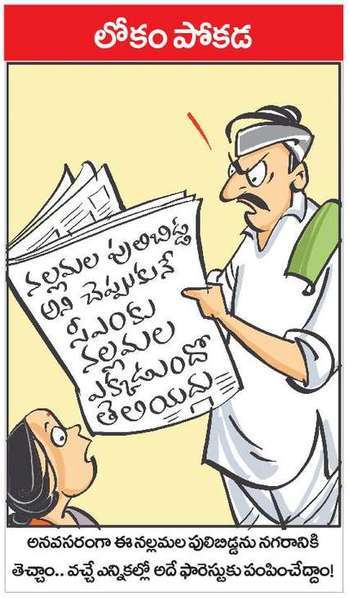 లోకం పోకడ
నల్లమల పులిబిడ్డ
అని చెప్పుకునే
సీఎంకు
నల్లమల
ఎక్కడుందో
తెలియదు
అనవసరంగా ఈ నల్లమల పులిబిడ్డను నగరానికి
తెచ్చాం.. వచ్చే ఎన్నికల్లో అదే ఫారెస్టుకు పంపించేద్దాం!